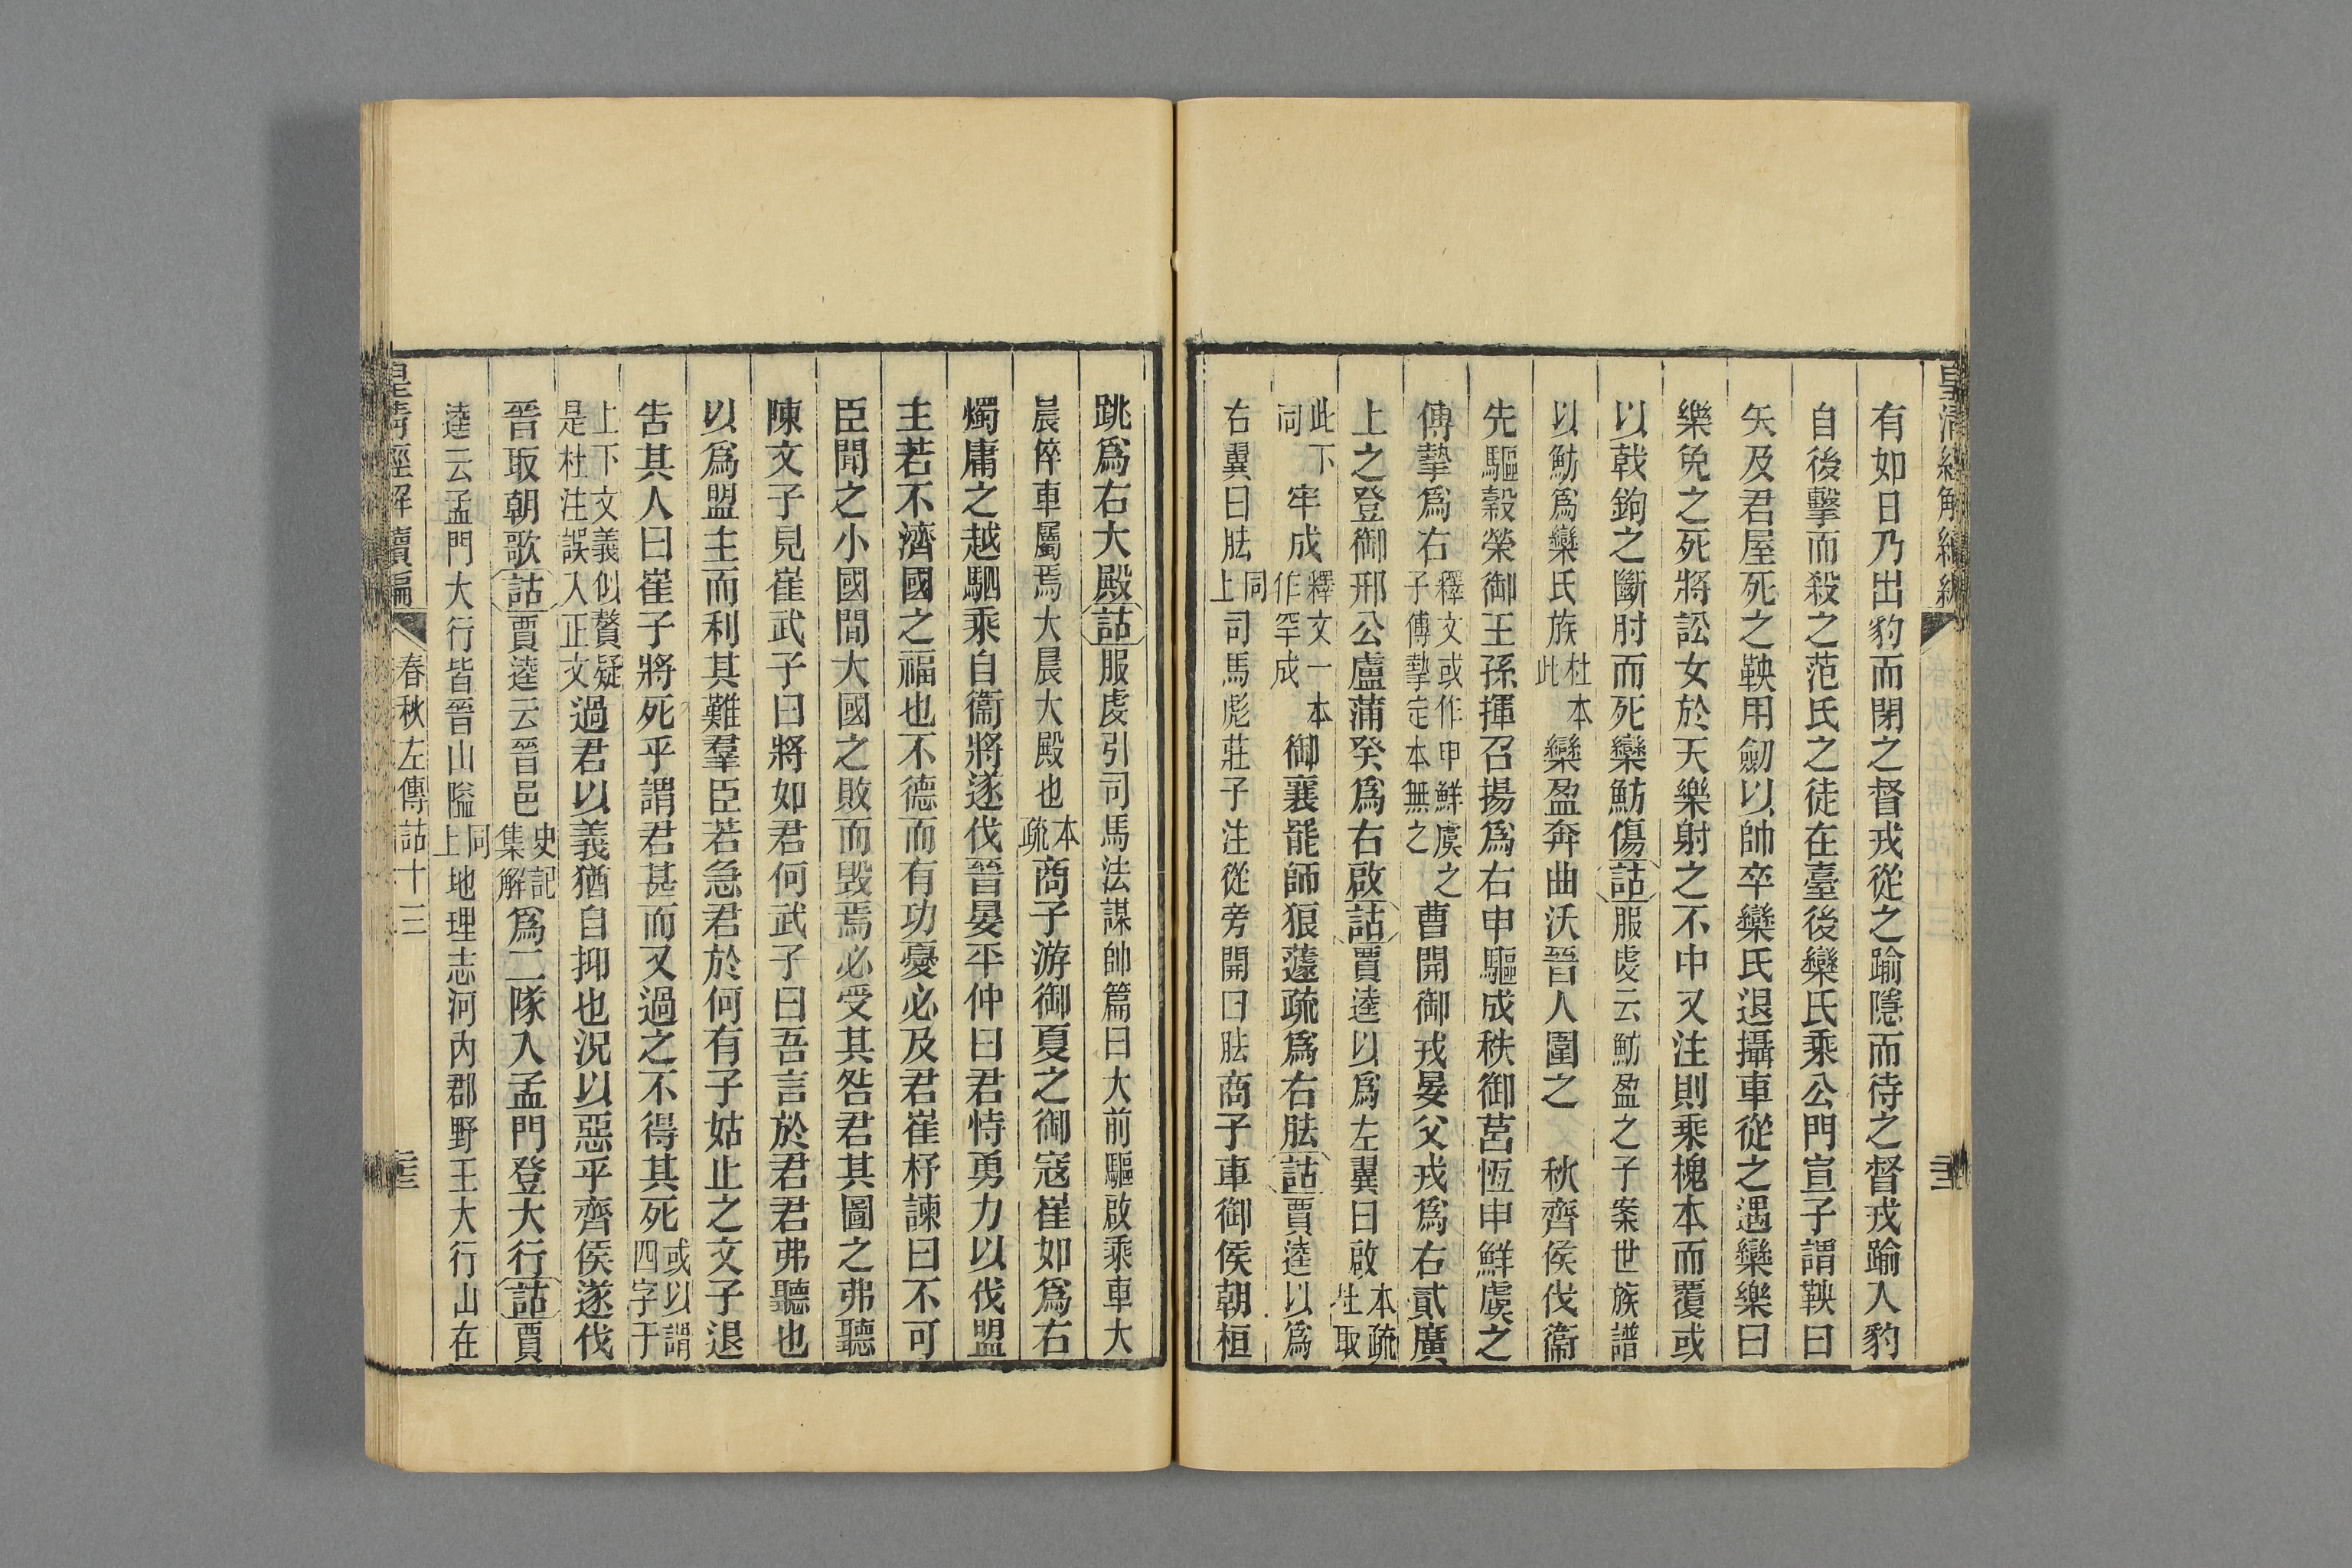 皇清經解續編
有如日乃出豹而閉之督戎從之踰隱而待之督戎踰入豹
自後擊而殺之范氏之徒在臺後欒氏乘公門宣子謂鞅曰
矢及君屋死之鞅用劒以帥卒欒氏退攝車從之遇欒樂曰
樂免之死將訟女於天樂射之不中又注則乘槐本而覆或
以戟鉤之斷肘而死欒魴傷詁服虔云魴盈之子案世族譜
以魴爲欒氏族杜本此欒盈奔曲沃晉人圍之　秋齊侯伐衞
先驅穀榮御王孫揮召揚爲右申驅成秩御莒恆申鮮虞之
傅摯爲右釋文或作申鮮虞之子傅摯定本無之曹開御戎晏父戎爲右貳廣
上之登御邢公盧蒲癸爲右啟詁賈逵以爲左翼曰啟本疏杜取
此下同牢成釋文一本作罕成御襄罷師狼蘧疏爲右胠詁賈逵以爲
右翼曰胠同上司馬彪莊子注從旁開曰胠商子車御侯朝桓
跳爲右大殿詁服虔引司馬法謀帥篇曰大前驅啟乘車大
晨倅車屬焉大晨大殿也本疏商子游御夏之御寇崔如爲右
燭庸之越駟乘自衞將遂伐晉晏平仲曰君恃勇力以伐盟
主若不濟國之福也不德而有功憂必及君崔杼諫曰不可
臣聞之小國間大國之敗而毀焉必受其咎君其圖之弗聽
陳文子見崔武子曰將如君何武子曰吾言於君君弗聽也
以爲盟主而利其難羣臣若急君於何有子姑止之文子退
告其人曰崔子將死乎謂君甚而又過之不得其死或以謂四字于
上下文義似贅疑是杜注誤入正文過君以義猶自抑也況以惡乎齊侯遂伐
晉取朝歌詁賈逵云晉邑史記集解爲二隊入孟門登大行詁賈
逵云孟門大行皆晉山隘同上地理志河內郡野王大行山在
皇清經解續編　春秋左傳詁十三